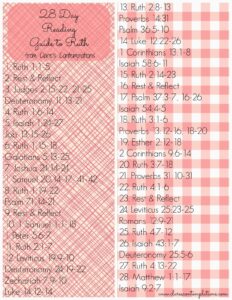 28 Day
Reading
Guide to Ruth
from Cami's Contemplations
1. Ruth 1:1-5
2. Rest & Reflect
3. Judges 2:15, 22, 21:25
Deuteronomy 11:13-21
4. Ruth 1:6-14
5. Isaiah 1:21-27
Job 13:15-16
6. Ruth 1:15-18
Galatians 5:13-25
7. Joshua 24:14-21
1 Samuel 20:14-17, 41-42
8. Ruth 1:19-22
Psalm 71:14-21
9. Rest & Reflect
10. 1 Samuel 1:1-18
1 Peter 5:6-7
11. Ruth 2:1-7
12. Leviticus 19:9-10
Deuteronomy
Zechariah 7:9-10
Luke 14:12-14
13. Ruth 2:8-13
Proverbs 14:31
Psalm 36:5-10
14. Luke 12:22-26
1 Corinthians
Isaiah 58:6-11
15. Ruth 2:14-23
16. Rest & Reflect
17. Psalm 37:3-7, 16-26
Isaiah
18. Ruth 3:1-6
Proverbs 13:12, 16, 18-20
19. Esther 2:12-18
2 Corinthians 9:6-14
20. Ruth 3:7-18
21. Proverbs 31:10-31
22. Ruth 4:1-6
23. Rest & Reflect
24. Leviticus 25:23-25
25. Ruth 4:7-12
26. Isaiah 43:1-7
Deuteronomy 25:5-6
27. Ruth 4:13-22
28. Matthew 1:1-17
Isaiah 9:2-7